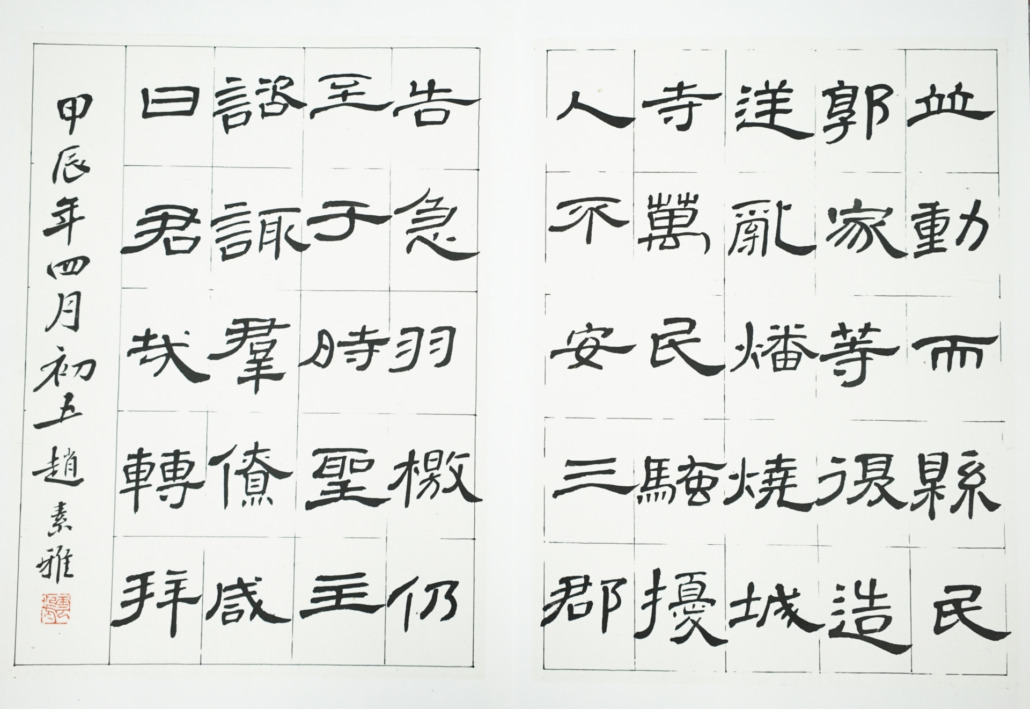 並動而縣民
郭家等復造
逆亂燔燒城
寺萬民騷擾
人不安三郡
告急羽檄仍
至于時聖主
諮諏羣僚咸
曰君哉轉拜
甲辰年四月初五趙素雅